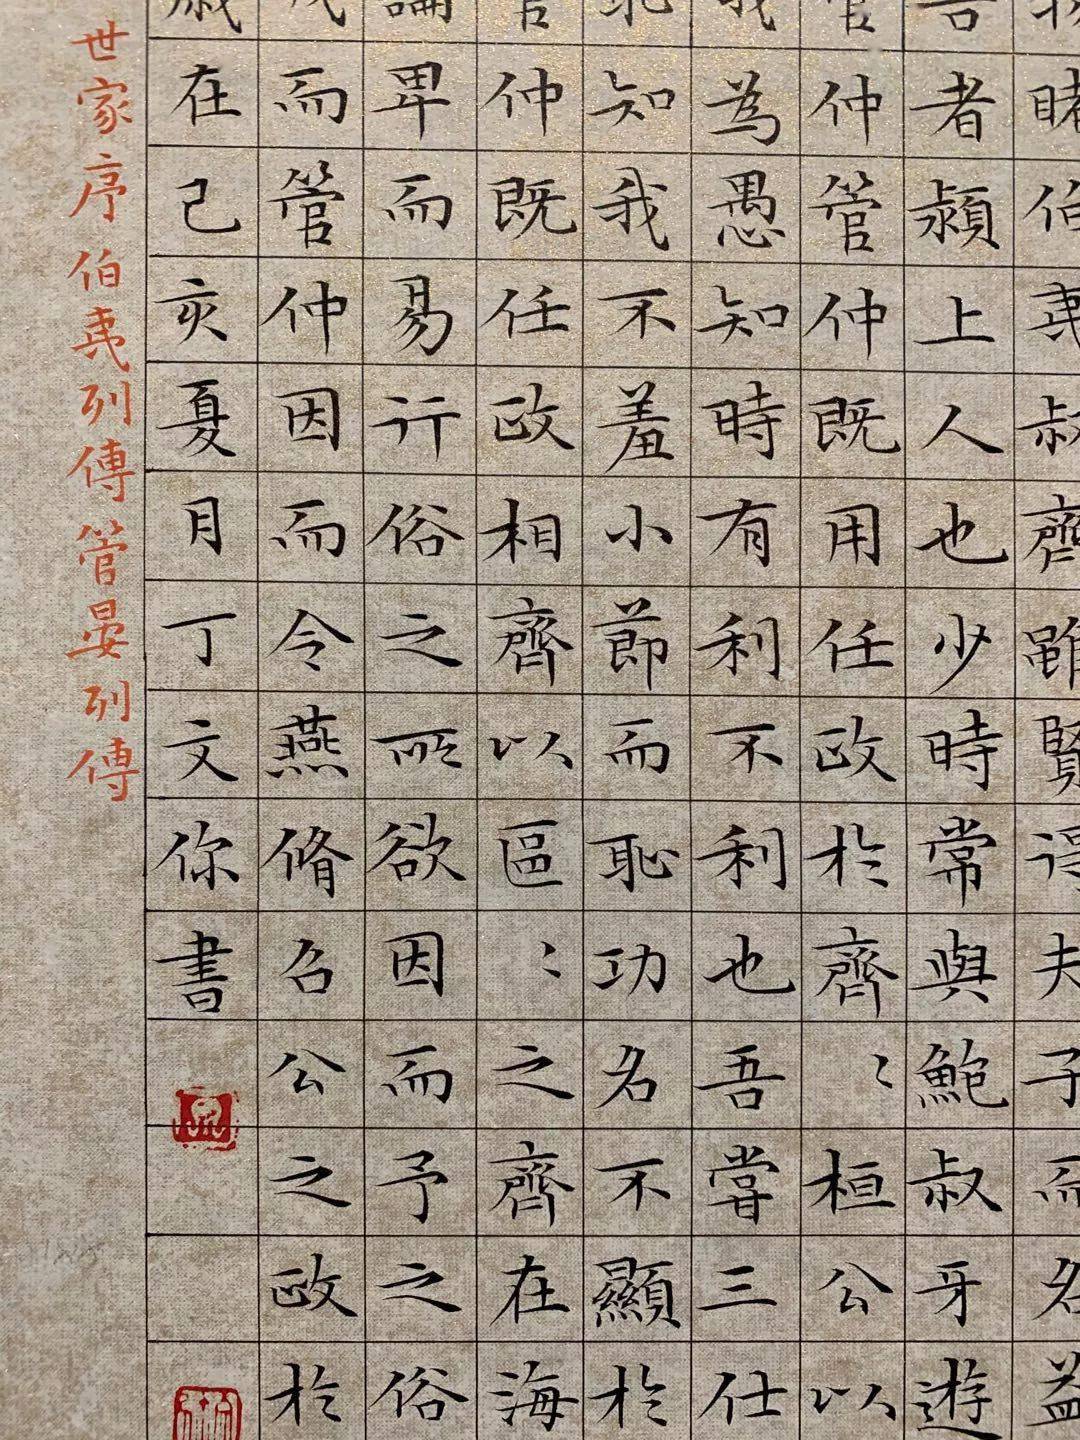 伯夷叔齊雖賢得夫子而名益
者潁上人也少時常與鮑叔牙遊
管仲管仲既用任政於齊〻桓公以
我為愚知時有利不利也吾嘗三仕
知我不羞小節而恥功名不顯於
管仲既任政相齊以區〻之齊在海
論卑而易行俗之所欲因而予之俗
而管仲因而令燕脩召公之政於
歲在己亥夏月丁文你書
世家序 伯夷列傳 管晏列傳